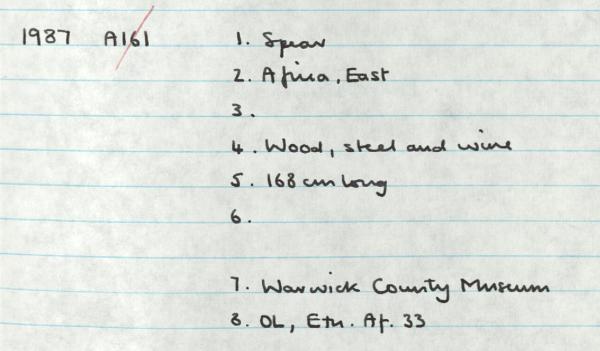 1987 A161 1. Spear
2. Africa, East
3.
4. Wood, steel and wire
5. 168 cm long
6.
7. Warwick County Museum
8. OL, Etn. Af. 33